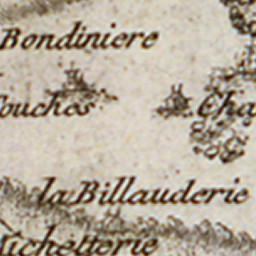 Bondiniere
ouches
Cha
la Billauderie
ichetterie